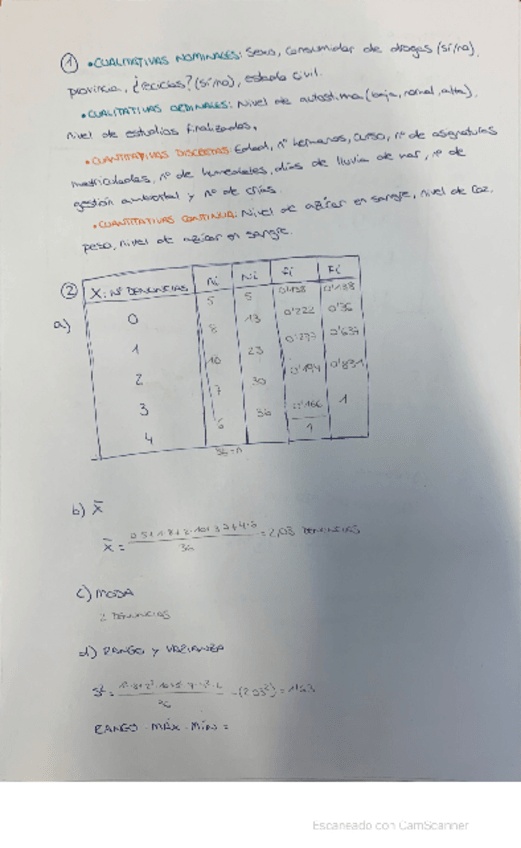 ① • CUALITATIVAS NOMINALES: Sexo, consumidor de drogas (si/no),
provincia, ¿reciclas? (si/no), estado civil.
• CUALITATIVAS ORDINALES: Nivel de autoestima (baja, normal, alta),
nivel de estudios finalizados.
• CUANTITATIVAS DISCRETAS: Edad, nº hermanos, curso, nº de asignaturas
matriculadas, nº de humedales, días de lluvia de mar, nº de
gestión ambiental y nº de crías.
• CUANTITATIVAS CONTINUA: Nivel de azúcar en sangre, nivel de Co2,
peso, nivel de azúcar en sangre.
② X: Nº DENUNCIAS ni Ni fi Fi
a) 0 5 5 0'138 0'138
1 8 13 0'222 0'36
2 10 23 0'277 0'637
3 7 30 0'194 0'831
4 6 36 0'166 1
36 = n 1
b) x̄
x̄ = 0·5+1·8+2·10+3·7+4·6 / 36 = 2,03 DENUNCIAS
c) MODA
2 DENUNCIAS
d) RANGO Y VARIANZA
36
RANGO MÁX - MÍN =
Escaneado con CamScanner